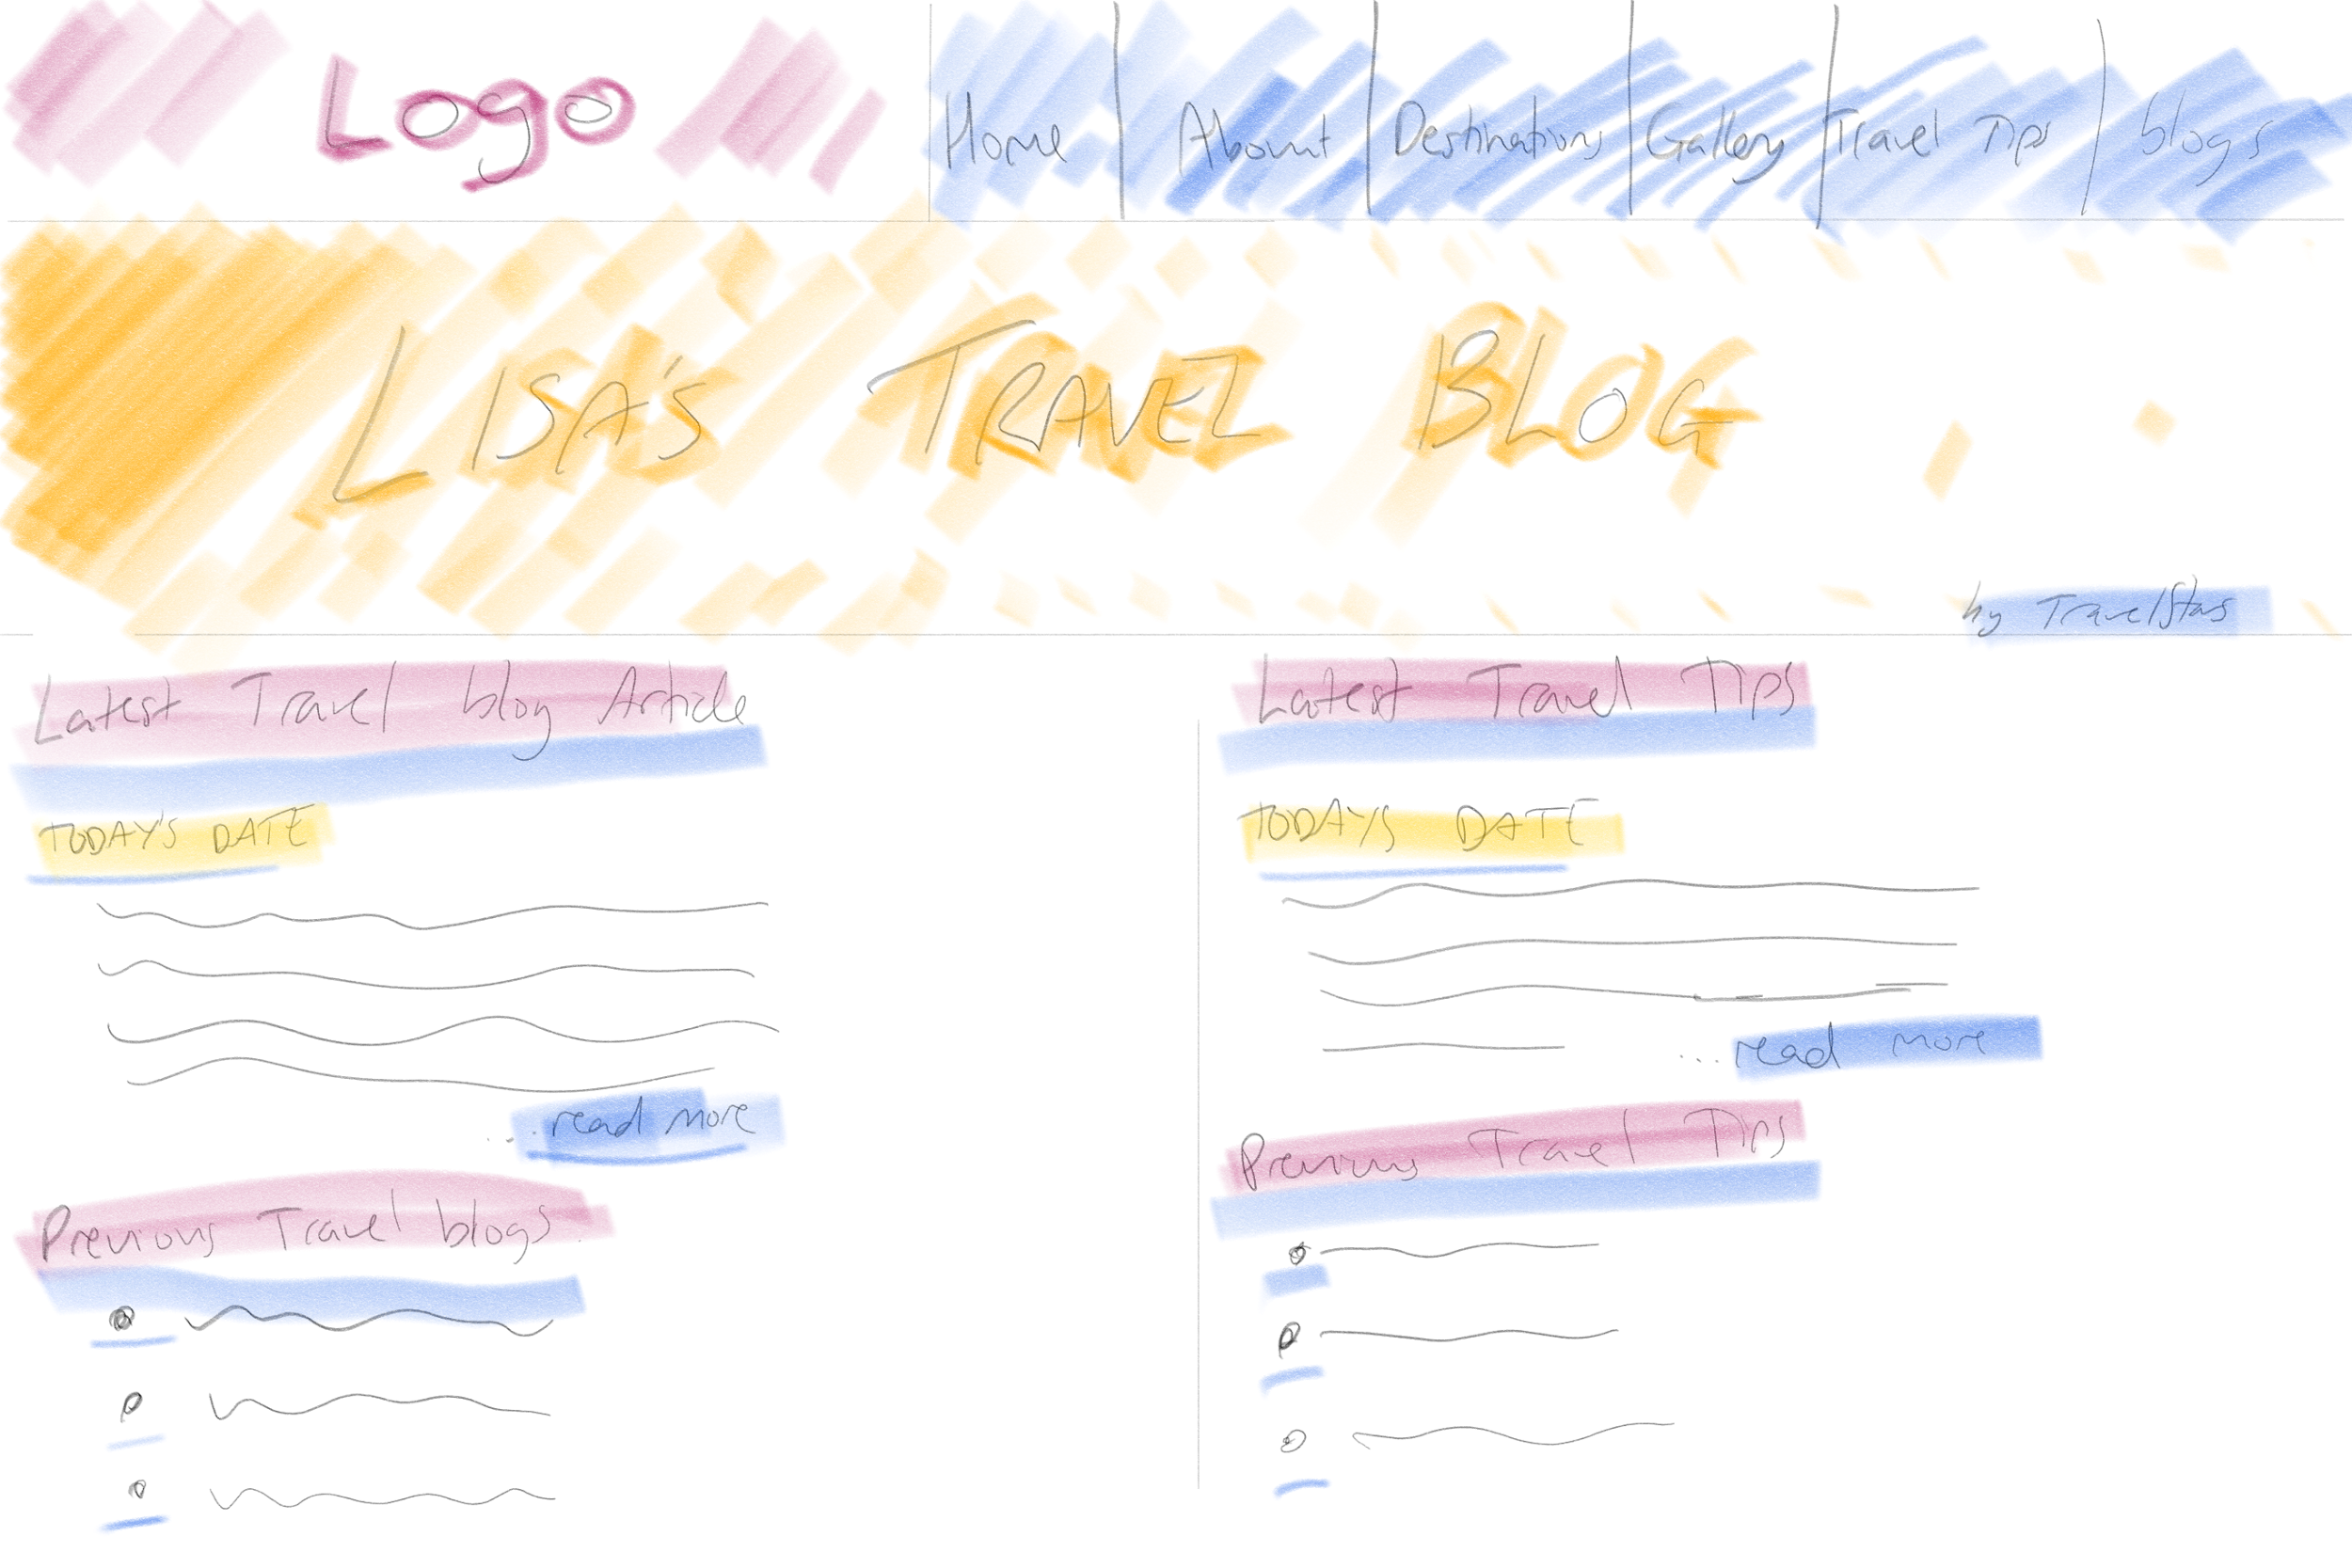 Logo
Home About Destinations Gallery Travel Tips blogs
LISA'S TRAVEL BLOG
by TravelStars
Latest Travel blog Article
TODAY'S DATE
...read more
Previous Travel blogs.
Latest Travel Tips
TODAY'S DATE
...read more
Previous Travel Tips